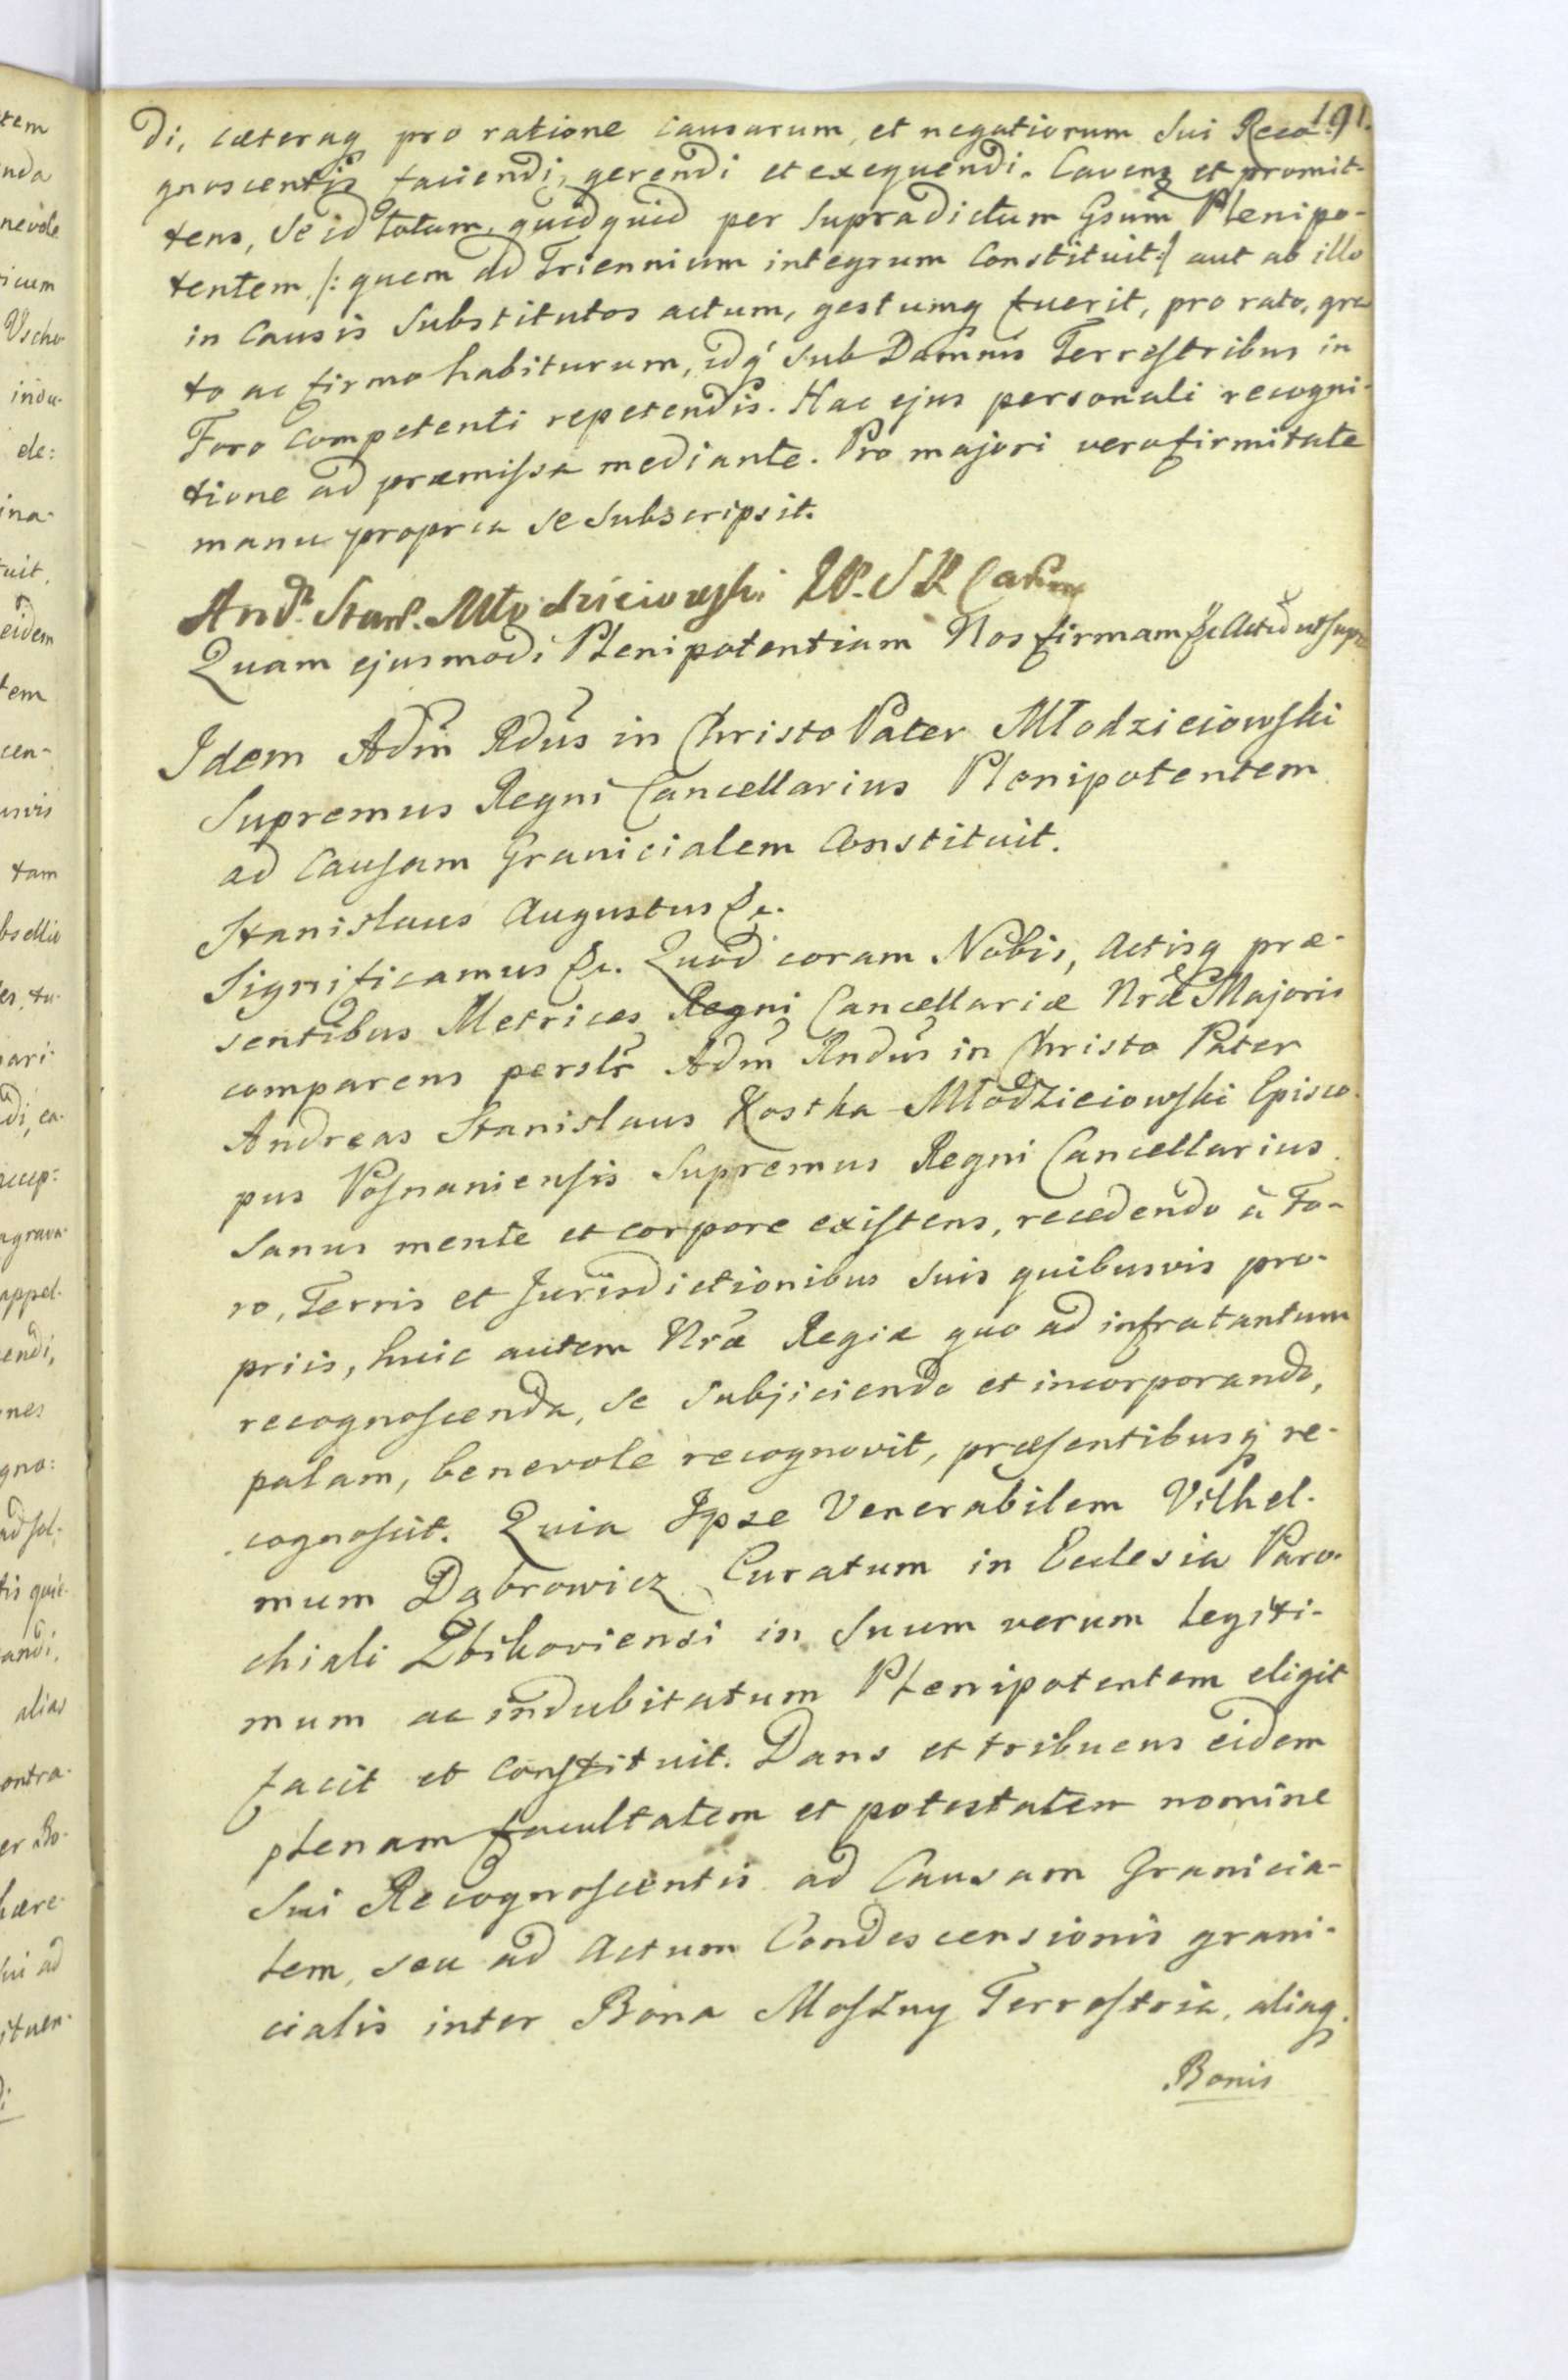 191.
di, cæteraq pro ratione causarum, et negotiorum Sui Reco-
gnoscentis faciendi, gerendi et exequendi. Cavens et promit-
tens, Se id totum, quidquid per Supradictum Gsum Plenipo-
tentem /: quem ad Triennium integrum Constituit :/ aut ab illo
in Causis Substitutos actum, gestumq fuerit, pro rato, gra
to ac firmo habiturum, idq Sub Damnis Terrestribus in
Foro Competenti repetendis. Hac ejus personali recogni-
tione ad præmissa mediante. Pro majori vero firmitate
manu propria Se Subscripsit.
And. Stan. Młodzieiowski
Quam ejusmodi Plenipotentiam Nos firmam &c Actũ ut supra
Idem Adm̃ Rdũs in Christo Pater Młodzieiowski
Supremus Regni Cancellarius Plenipotentem
ad Causam Granicialem Constituit.
Stanislaus Augustus &c.
Significamus &c. Quod coram Nobis, Actisq præ-
sentibus Metrices Regni Cancellariæ Nræ Majoris
comparens perslr Adm̃ Rndũs in Christo Pater
Andreas Stanislaus Kostka Młodzieiowski Episco-
pus Posnaniensis Supremus Regni Cancellarius
Sanus mente et corpore existens, recedendo à Fo-
ro, Terris et Jurisdictionibus Suis quibusvis pro-
priis, huic autem Nræ Regiæ quo ad infra tantum
recognoscenda, Se Subjiciendo et incorporando,
palam, benevole recognovit, præsentibusq re-
cognoscit. Quia Ipse Venerabilem Vilhel-
mum Dąbrowicz Curatum in Ecclesia Paro-
chiali Zbikoviensi in Suum verum legiti-
mum ac indubitatum Plenipotentem eligit
facit et constituit. Dans et tribuens eidem
plenam facultatem et potestatem nomine
Sui Recognoscentis ad Causam Granicia-
lem, seu ad Actum Condescensionis grani-
cialis inter Bona Moszny Terrestria, aliaq
Bonis